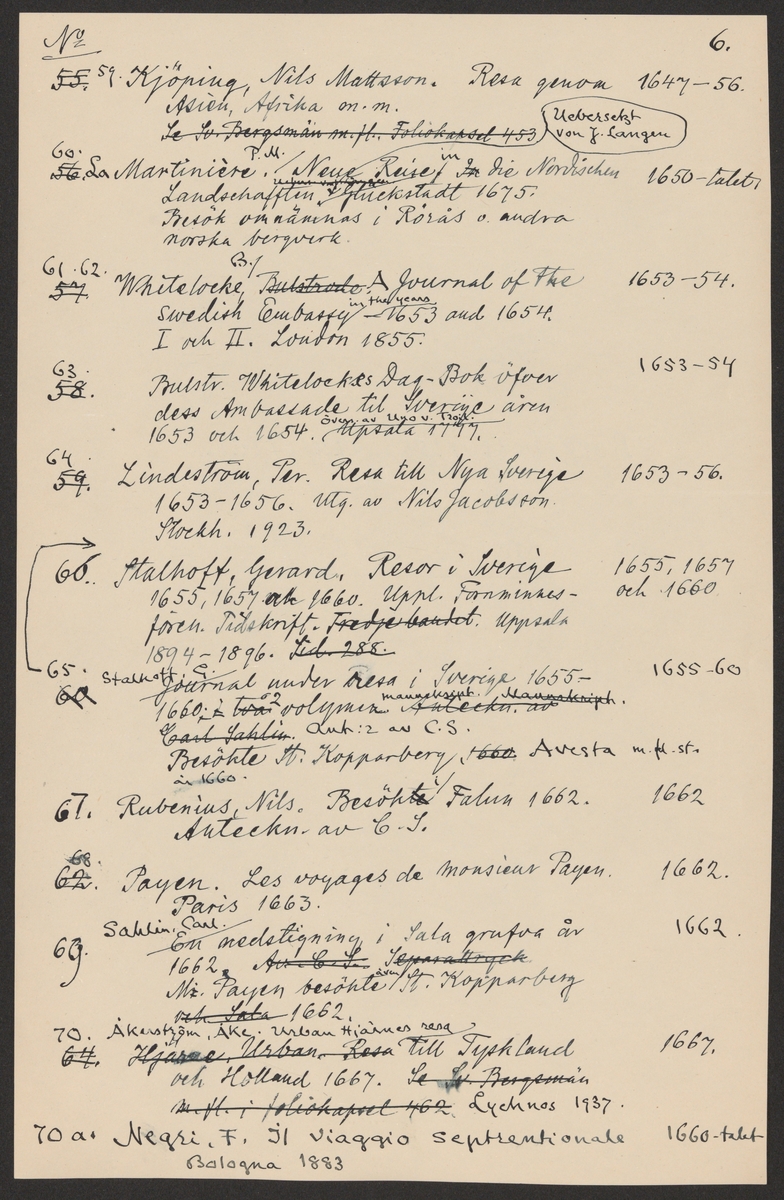 No 6.
55. 59. Kjöping, Nils Mattsson. Resa genom 1647-56.
Asien, Afrika m.m.
Se Sv. Bergsmän m.fl. Foliokapsel 453
Uebersetzt
von J. Langen
60. P.M. in
56. La Martinière. Neue Reise in die Nordischen 1650-talet
Landschafften. Glückstadt 1675.
Besök omnämnas i Rörås o. andra
norska bergverk.
61. 62. B.
57. Whitelocke, Bulstrode. A Journal of the 1653-54.
in the years
Swedish Embassy 1653 and 1654.
I och II. London 1855.
63. 1653-54
58. Bulstr. Whitelockes Dag-Bok öfver
dess Ambassade til Sverige åren
övers. av Uno v. Troil.
1653 och 1654. Upsala 1777.
64.
59. Lindeström, Per. Resa till Nya Sverige 1653-56.
1653-1656. Utg. av Nils Jacobsson.
Stockh. 1923.
66. Stalhoff, Gerard. Resor i Sverige 1655, 1657
1655, 1657 och 1660. Uppl. Fornminnes- och 1660
fören. Tidskrift. Tredje bandet. Uppsala
1894-1896. Sid. 288.
65. Stalhoff, G. 1655-60
60 Journal under resa i Sverige 1655-
1660; i två 2 volymer. manuskript. Manuskript.
Anteckn. av
Carl Sahlin. Ant:2 av C.S.
Besökte St. Kopparberg 1660. Avesta m.fl. st.
år 1660.
67. Rubenius, Nils. Besökte i Falun 1662. 1662
Anteckn. av C.S.
68.
62. Payen. Les voyages de monsieur Payen. 1662.
Paris 1663.
Sahlin, Carl. 1662.
69 En nedstigning i Sala grufva år
1662. Av C.S. Separattryck
Mr. Payen besökte även St. Kopparberg
och Sala 1662.
70. Åkerström, Åke. Urban Hjärnes resa
64. Hjärne, Urban. Resa till Tyskland 1667.
och Holland 1667. Se Sv. Bergsmän
m.fl. i foliokapsel 462. Lychnos 1937.
70 a. Negri, F. Il Viaggio septrentionale 1660-talet
Bologna 1883